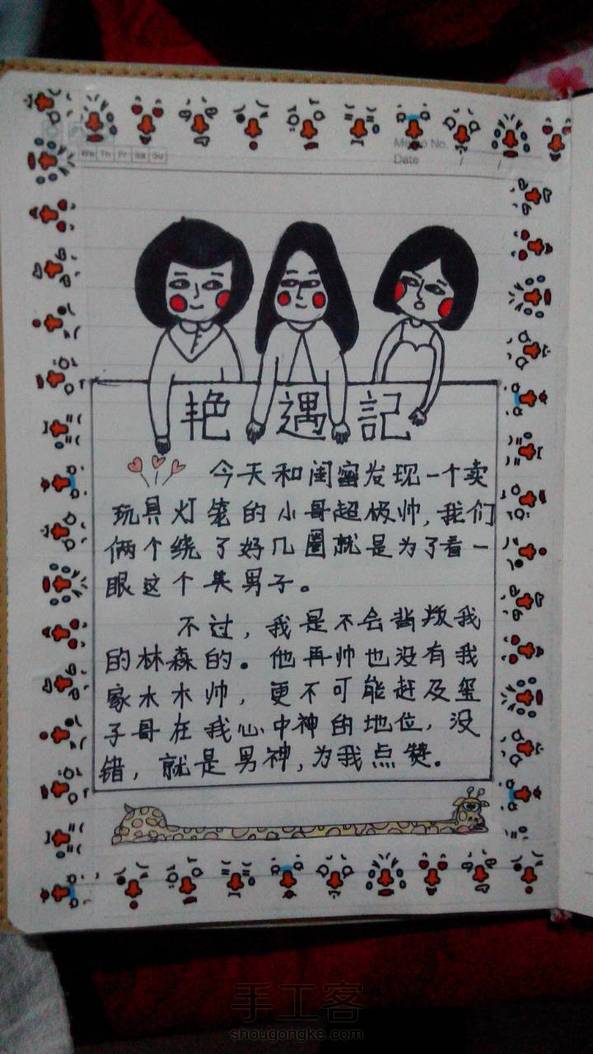 Memo No.
Date
We Th Fr Sa Su
艳遇記
今天和闺蜜发现一个卖
玩具灯笼的小哥超极帅,我们
俩个绕了好几圈就是为了看一
眼这个美男子。
不过,我是不会背叛我
的林森的。他再帅也没有我
家水木帅,更不可能赶及玺
子哥在我心中神的地位,没
错,就是男神,为我点赞。
手工客
shougongke.com